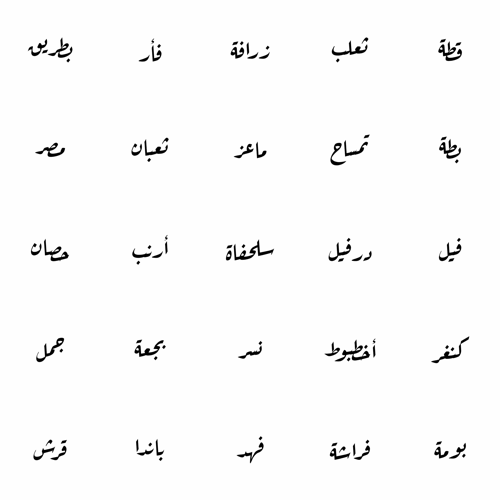 قطة ثعلب زرافة فأر بطريق
بطة تمساح ماعز ثعبان مصر
فيل درفيل سلحفاة أرنب حصان
كنغر أخطبوط نسر بجعة جمل
بومة فراشة فهد باندا قرش